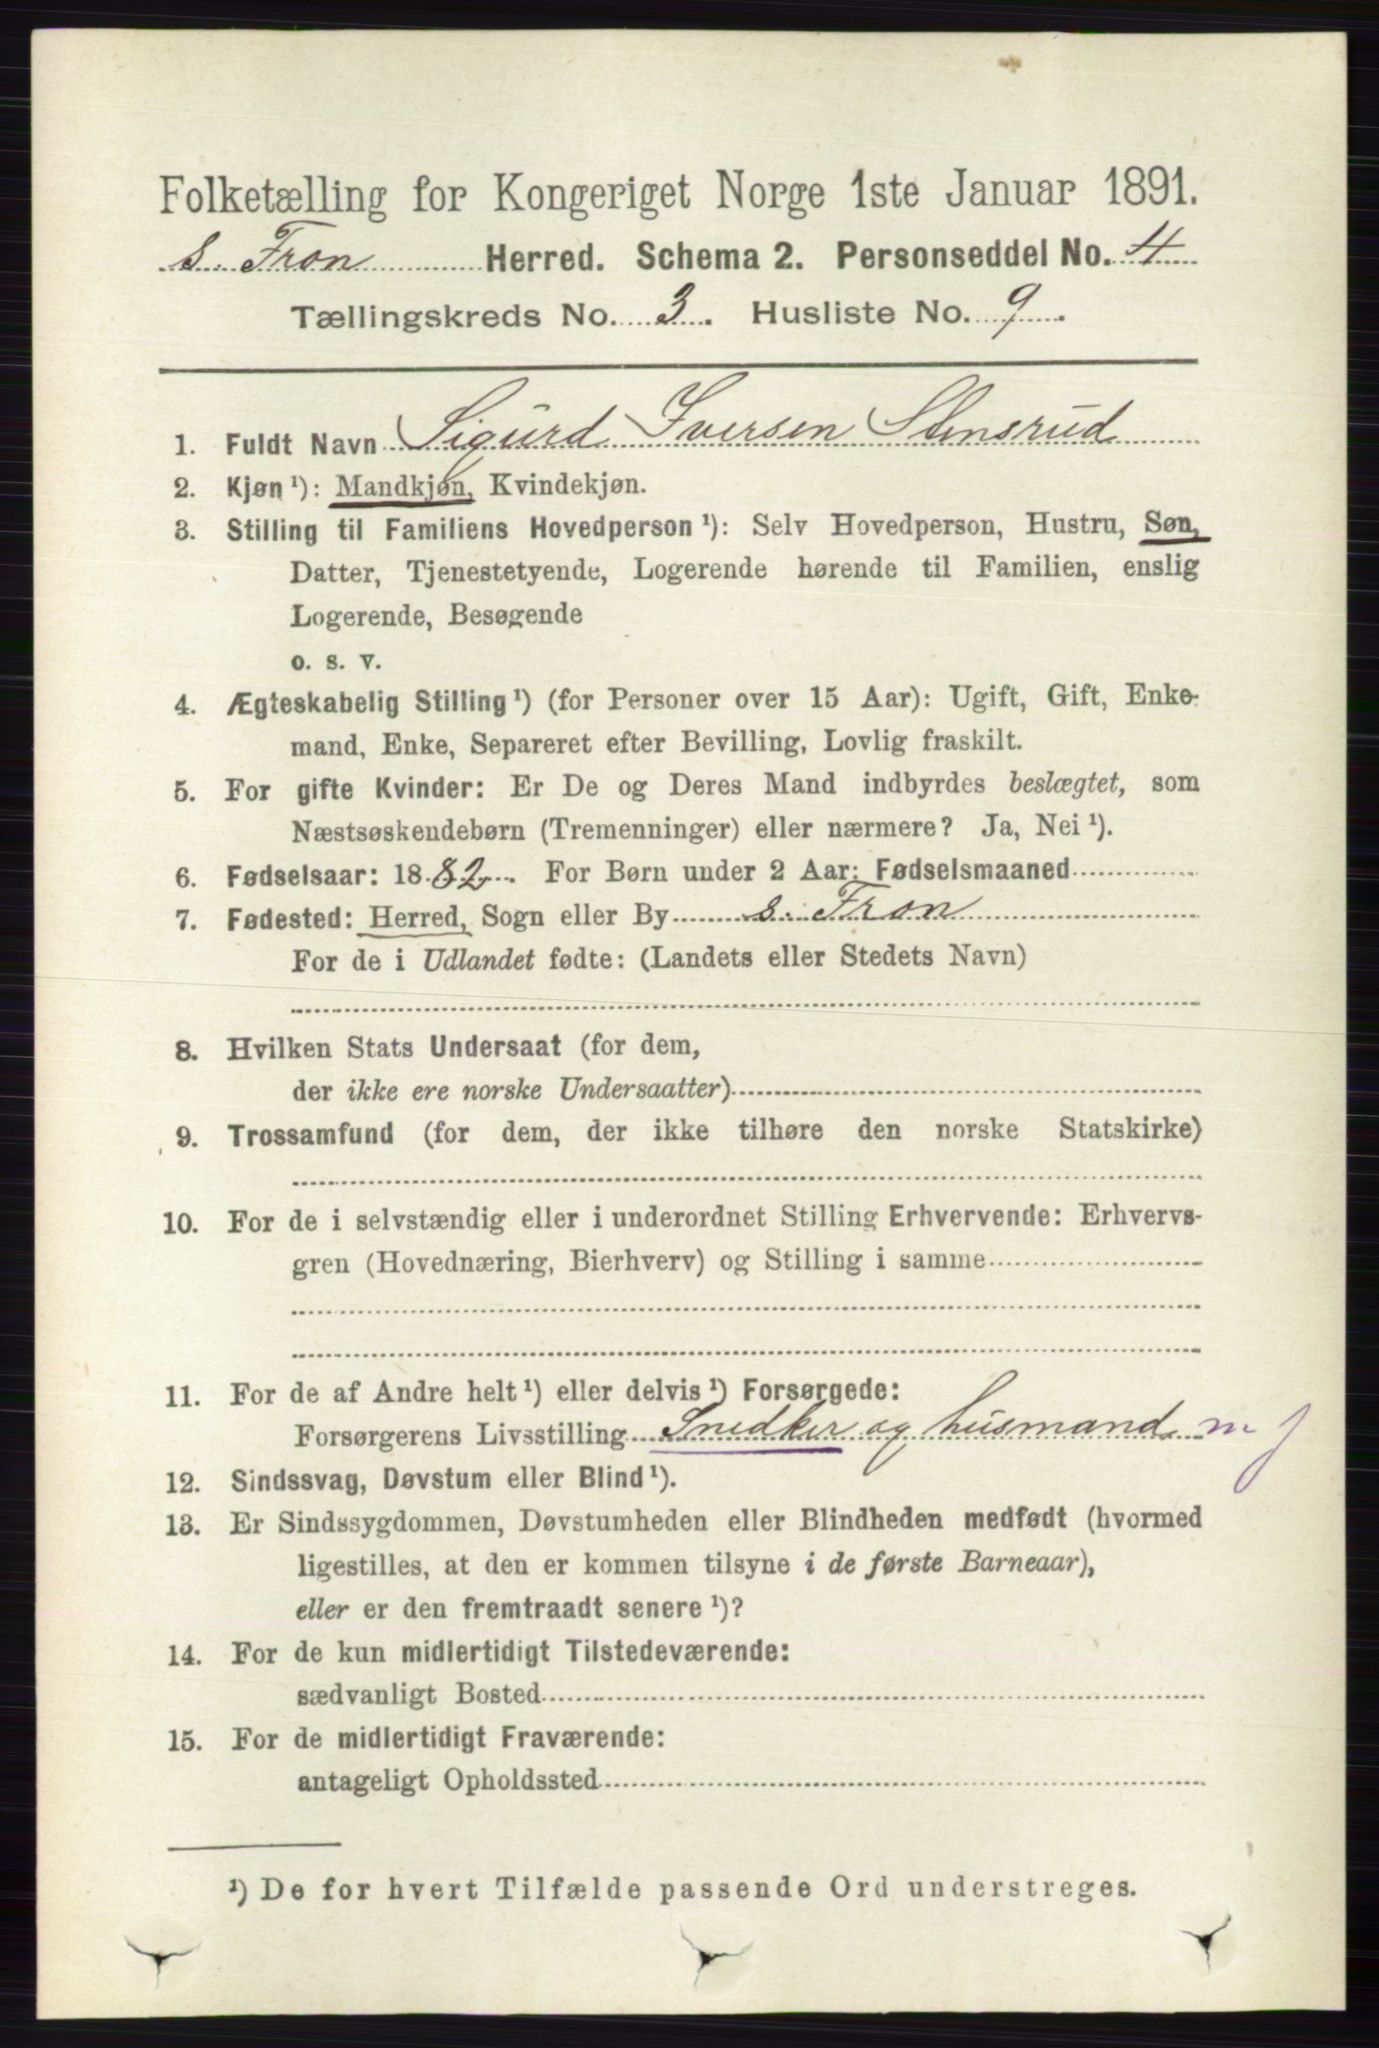 Folketælling for Kongeriget Norge 1ste Januar 1891.
s. Fron Herred. Schema 2. Personseddel No. 4
Tællingskreds No. 3. Husliste No. 9.
1. Fuldt Navn Sigurd Iversen Stensrud
2. Kjøn ¹): Mandkjøn, Kvindekjøn.
3. Stilling til Familiens Hovedperson ¹): Selv Hovedperson, Hustru, Søn,
Datter, Tjenestetyende, Logerende hørende til Familien, enslig
Logerende, Besøgende
o. s. v.
4. Ægteskabelig Stilling ¹) (for Personer over 15 Aar): Ugift, Gift, Enke-
mand, Enke, Separeret efter Bevilling, Lovlig fraskilt.
5. For gifte Kvinder: Er De og Deres Mand indbyrdes beslægtet, som
Næstsøskendebørn (Tremenninger) eller nærmere? Ja, Nei ¹).
6. Fødselsaar: 1882. For Børn under 2 Aar: Fødselsmaaned
7. Fødested: Herred, Sogn eller By s. Fron
For de i Udlandet fødte: (Landets eller Stedets Navn)
8. Hvilken Stats Undersaat (for dem,
der ikke ere norske Undersaatter)
9. Trossamfund (for dem, der ikke tilhøre den norske Statskirke)
10. For de i selvstændig eller i underordnet Stilling Erhvervende: Erhvervs-
gren (Hovednæring, Bierhverv) og Stilling i samme
11. For de af Andre helt ¹) eller delvis ¹) Forsørgede:
Forsørgerens Livsstilling Snedker og husmand m j
12. Sindssvag, Døvstum eller Blind ¹).
13. Er Sindssygdommen, Døvstumheden eller Blindheden medfødt (hvormed
ligestilles, at den er kommen tilsyne i de første Barneaar),
eller er den fremtraadt senere ¹)?
14. For de kun midlertidigt Tilstedeværende:
sædvanligt Bosted
15. For de midlertidigt Fraværende:
antageligt Opholdssted
¹) De for hvert Tilfælde passende Ord understreges.